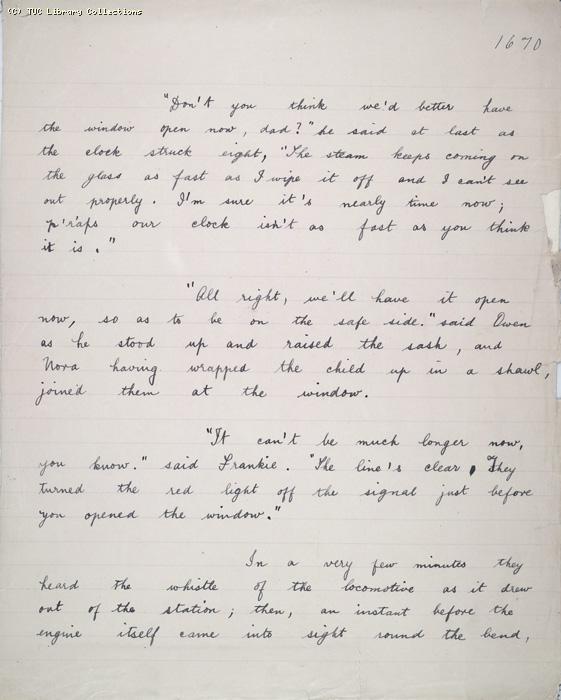 (C) TUC Library Collections
1670
"Don't you think we'd better have
the window open now, dad?" he said at last as
the clock struck eight, "The steam keeps coming on
the glass as fast as I wipe it off and I can't see
out properly. I'm sure it's nearly time now;
p'r'aps our clock isn't as fast as you think
it is."
"All right, we'll have it open
now, so as to be on the safe side." said Owen
as he stood up and raised the sash, and
Nora having wrapped the child up in a shawl,
joined them at the window.
"It can't be much longer now,
you know." said Frankie. "The line's clear, They
turned the red light off the signal just before
you opened the window."
In a very few minutes they
heard the whistle of the locomotive as it drew
out of the station; then, an instant before the
engine itself came into sight round the bend,